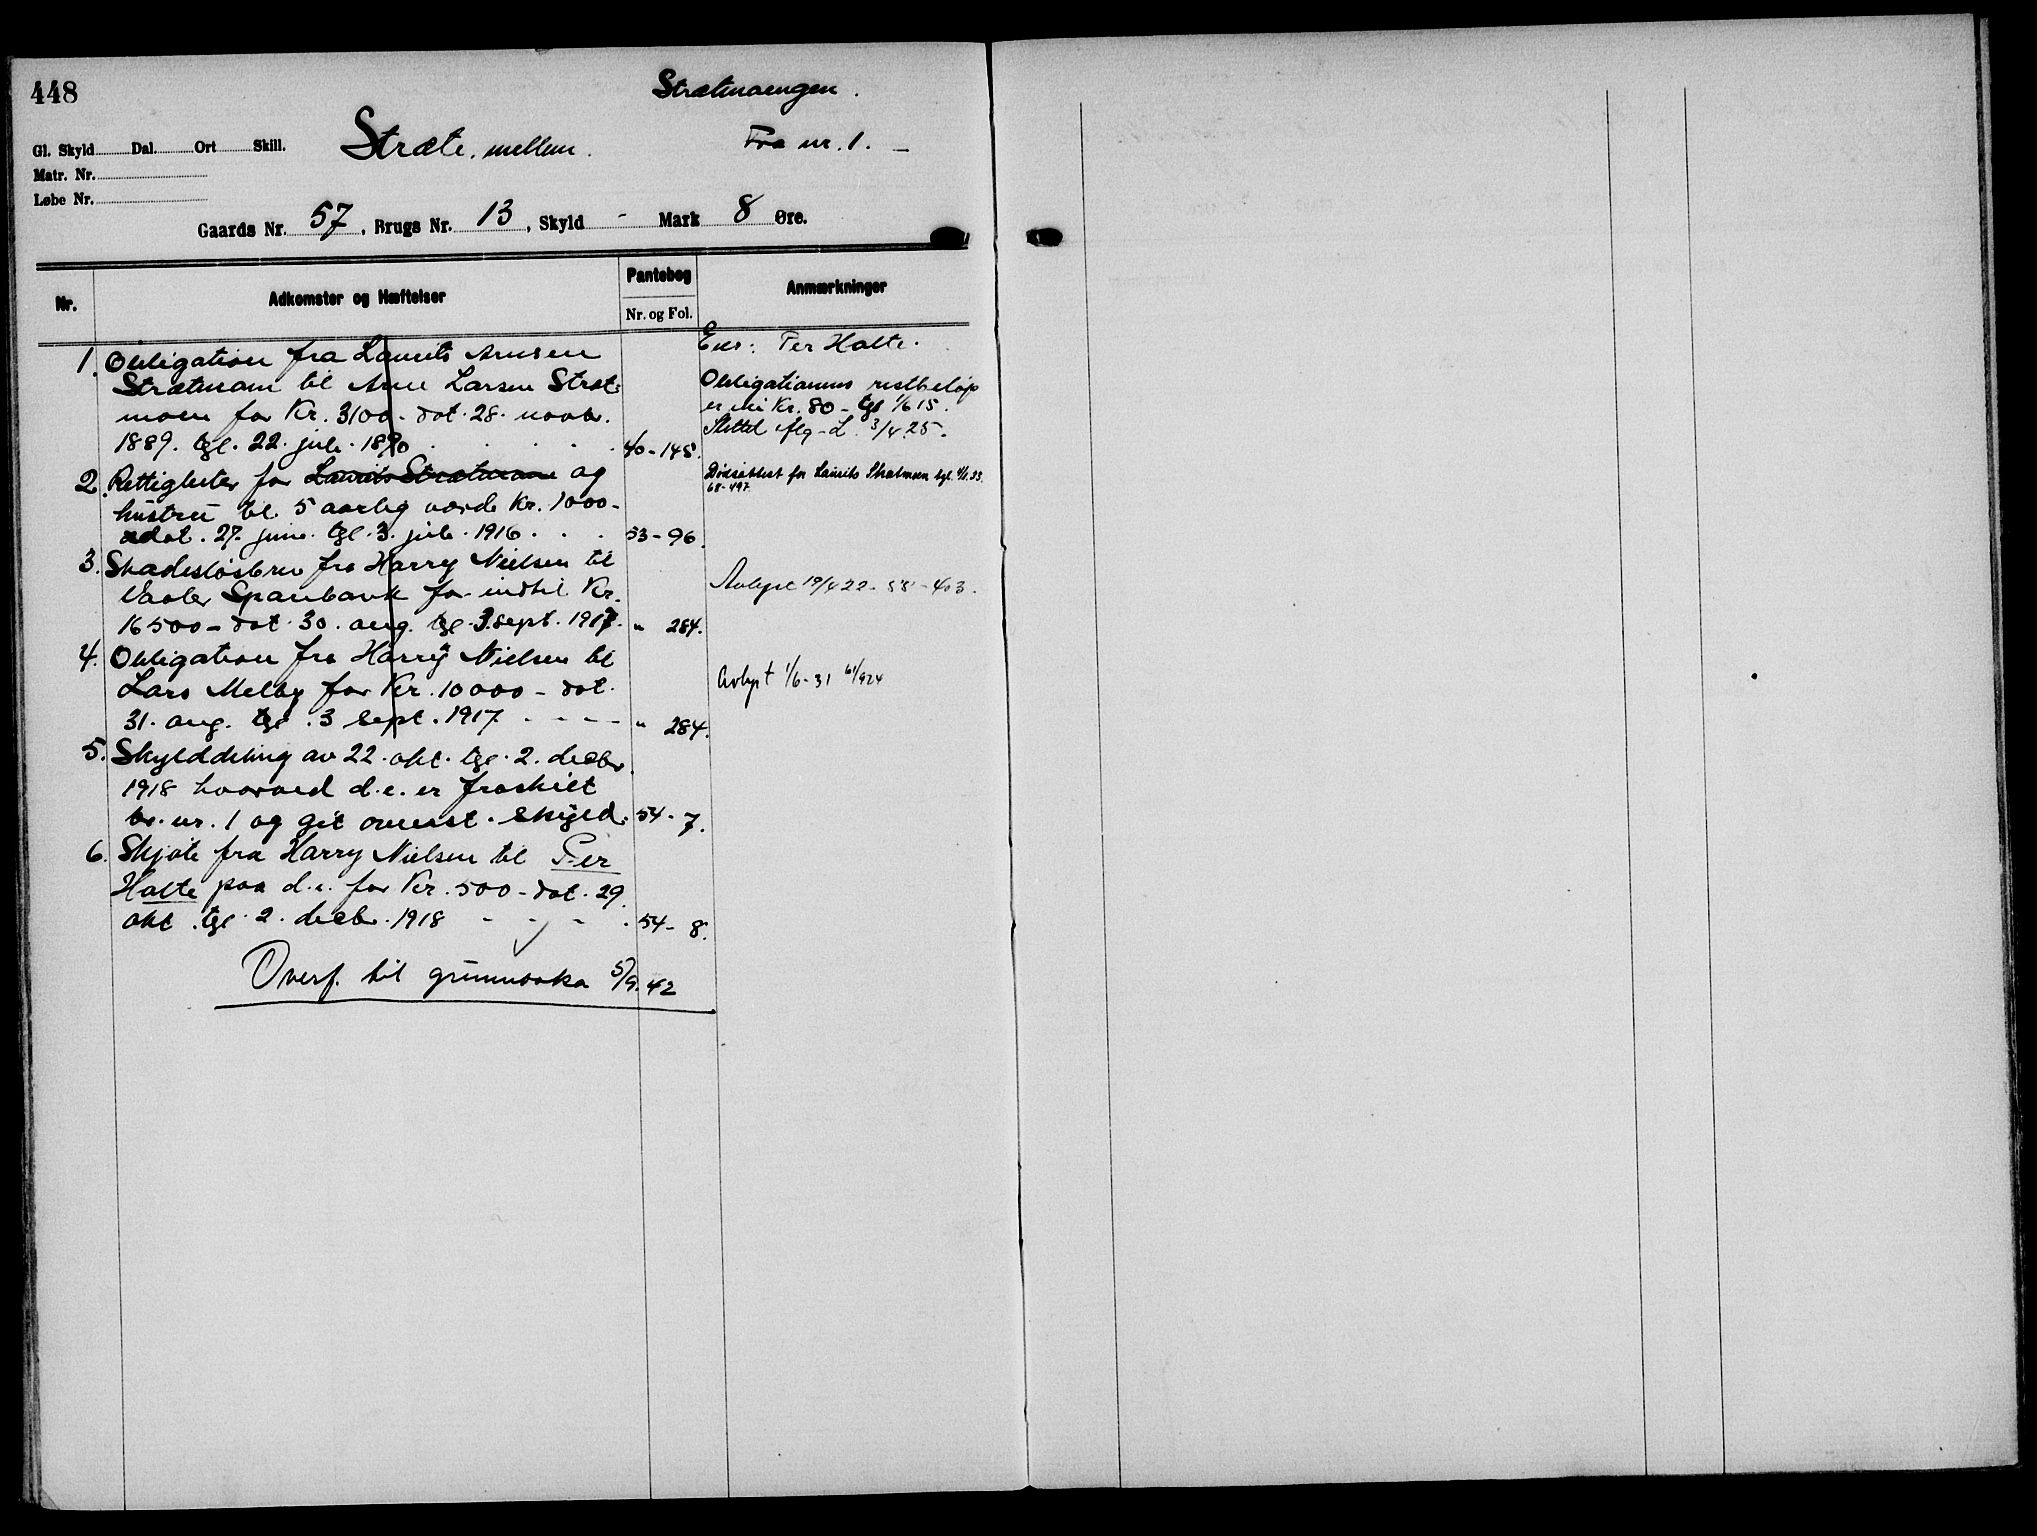 448
Strætmoengen.
Gl. Skyld Dal. Ort Skill.
Stræte, mellem.
Fra nr. 1. –
Matr. Nr.
Løbe Nr.
Gaards Nr. 57, Brugs Nr. 13, Skyld - Mark 8 Øre.
Nr.
Adkomster og Hæftelser
Pantebog
Nr. og Fol.
Anmærkninger
1. Obligation fra Laurits Arnesen
Strætmoen til Arne Larsen Stræt-
moen for Kr. 3100 - dat. 28. novbr.
1889. tgl. 22. juli. 1890 . . . . 40-148.
2. Rettigheter for Laurits Strætmoen og
hustru til 5 aarlig værdi Kr. 1000-
dat. 27. juni. tgl. 3. juli. 1916 . . . 53-96.
3. Skadesløsbrev fra Harry Nielsen til
Vaaler Sparebank for indtil Kr.
16500 - dat. 30. aug. tgl. 3. sept. 1917. " 284.
4. Obligation fra Harry Nielsen til
Lars Melby for Kr. 10000 - dat.
31. aug. tgl. 3 sept. 1917. - - - - " 284.
5. Skylddeling av 22. okt. tgl. 2. decbr.
1918 hvorved d.e. er fraskilt
br. nr. 1 og git ovenst. skyld. 54-7.
6. Skjøte fra Harry Nielsen til Per
Halte paa d.e. for Kr. 500 - dat. 29.
okt. tgl. 2. decbr. 1918 - - - . 54-8.
Overf. til grunnboka 5/9.42
Eier: Per Halte.
Obligationens restbeløp
er nu Kr. 80 - tgl 1/6 15.
Slettet iflg. L. 3/4.25.
Dødsattest for Laurits Strætmoen tgl. 4/1.33.
68-497.
Avlyst 19/4 22 - 58 - 403.
Avlyst 1/6-31 61/924